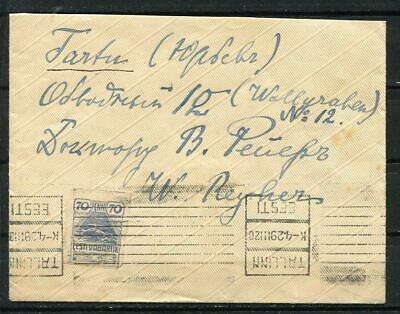 Тарту (Юрьевъ)
Обводный 12 (Wallgraben)
№ 12.
Доктору В. Рейеръ
W. Reyher
70 PENNI 70
EESTI VABARIIK
TALLINN
EESTI
TALLINN
K-4.29 II 20
EESTI